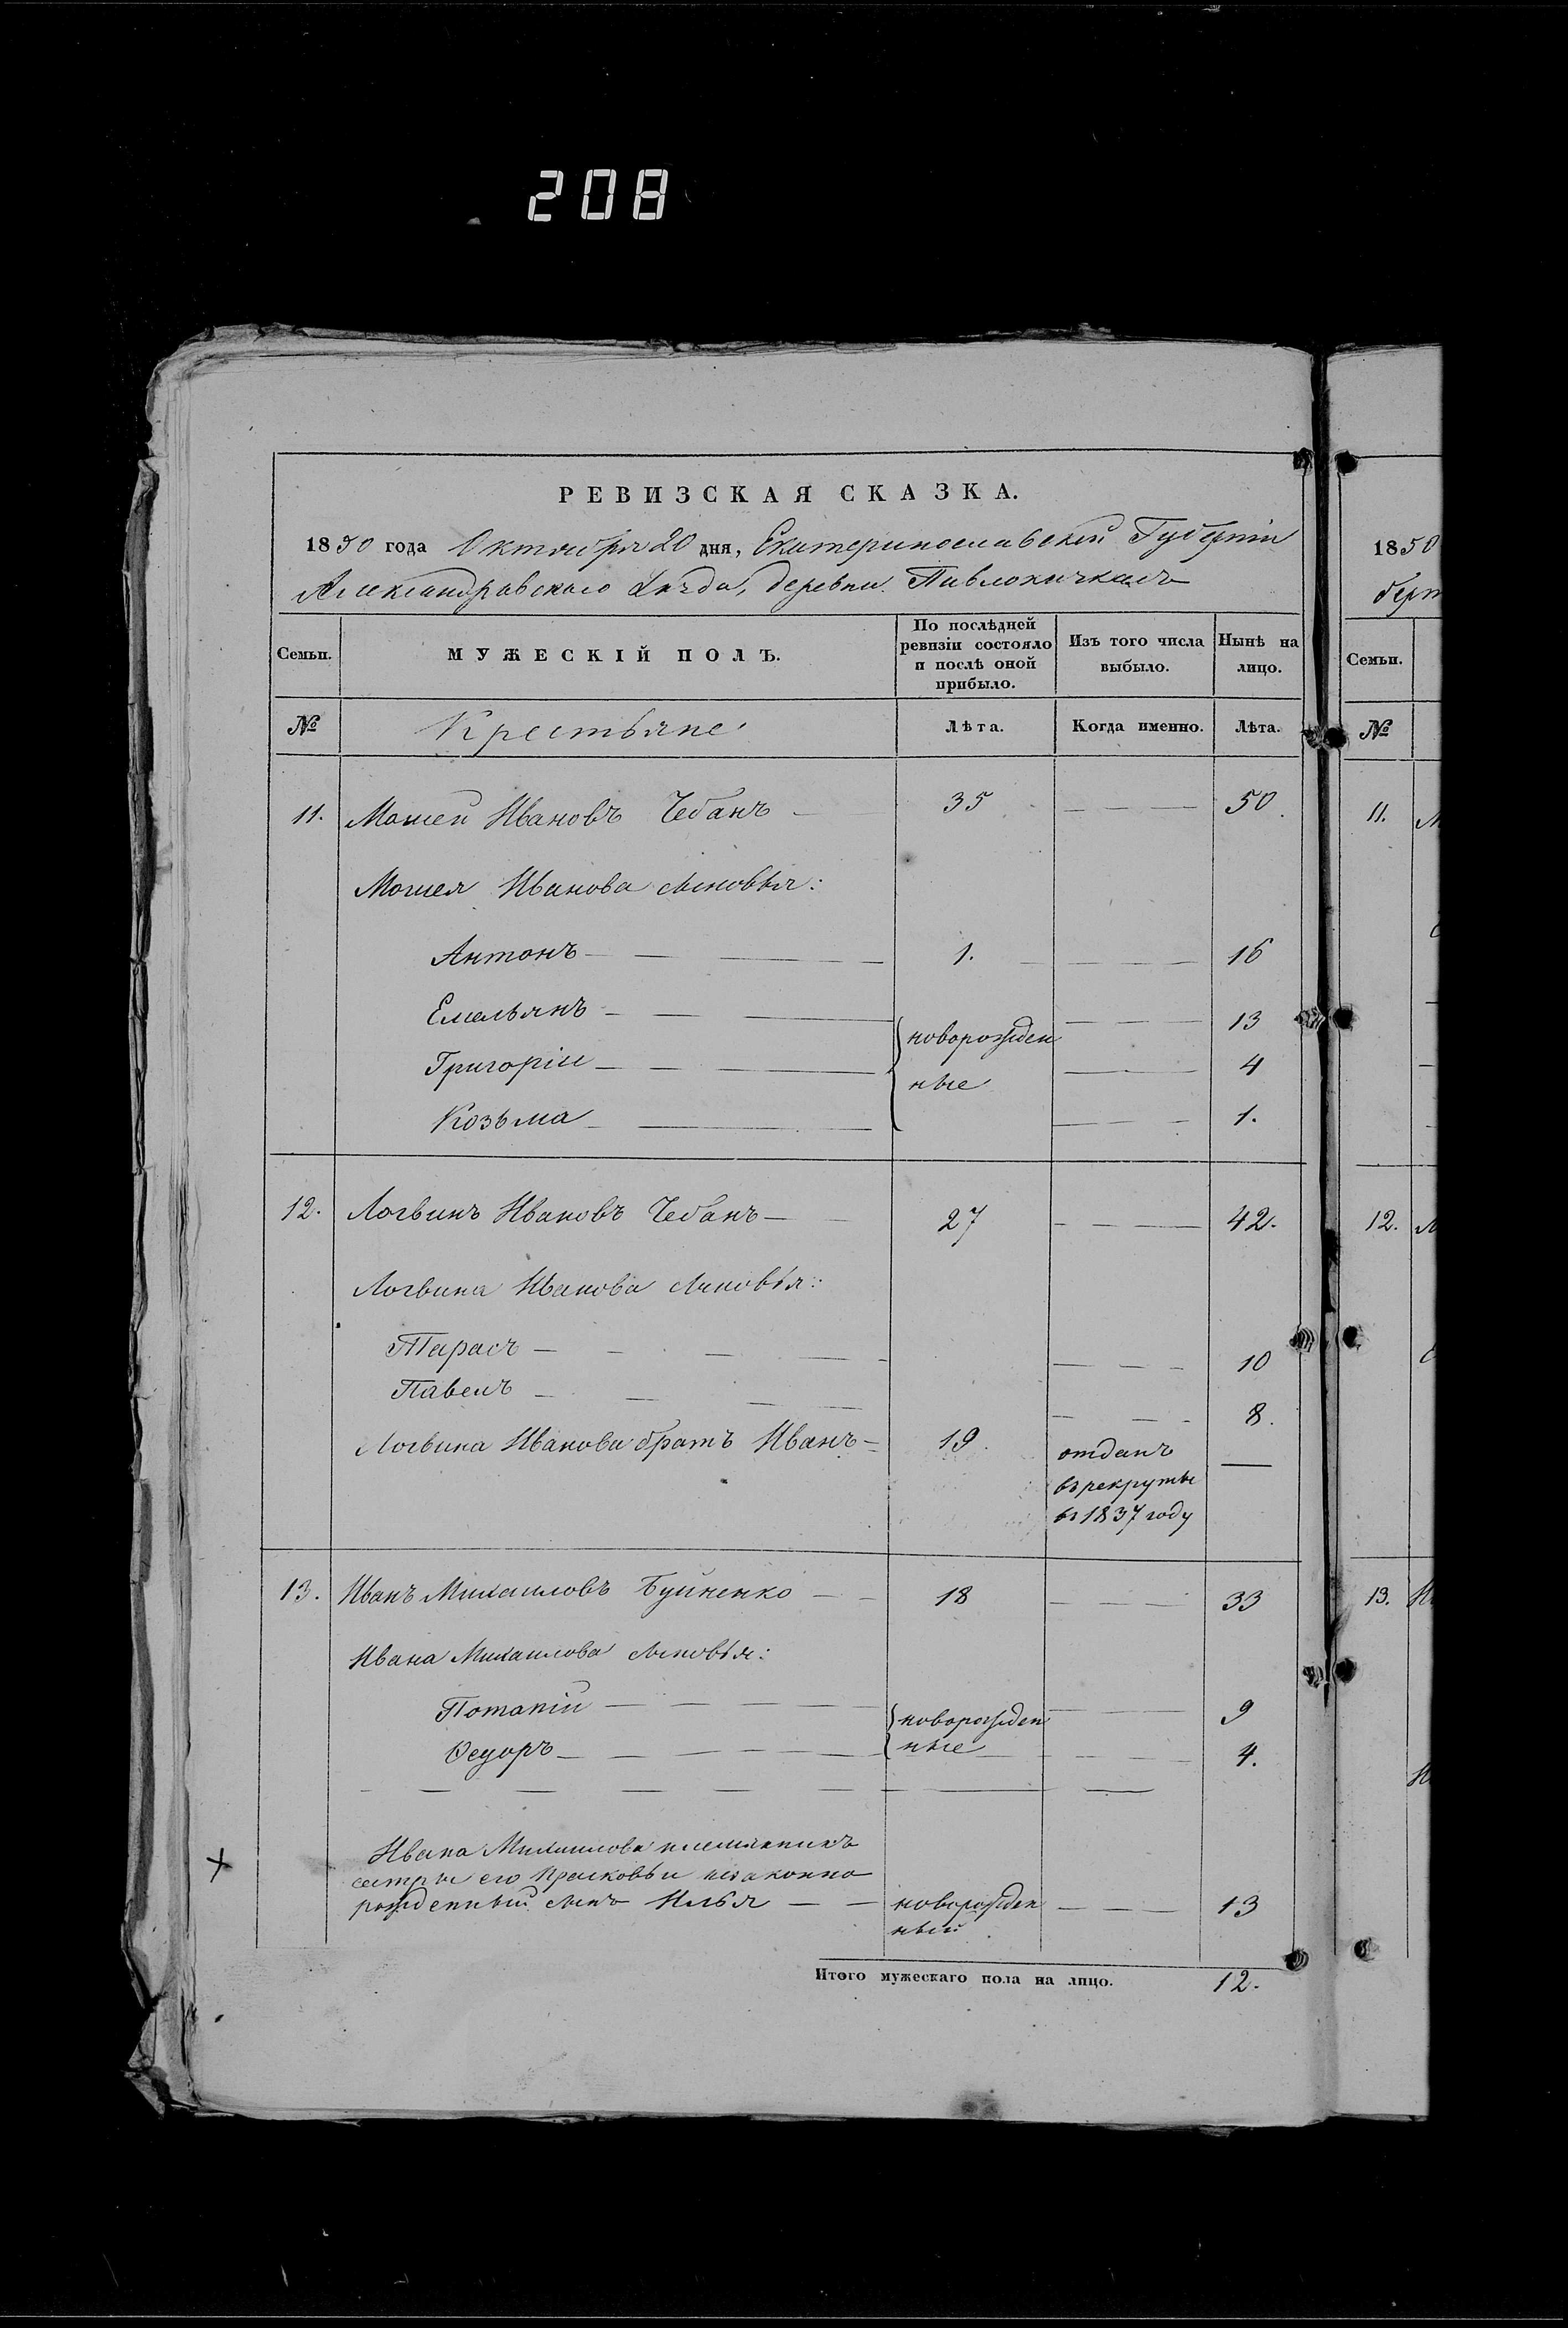 208
РЕВИЗСКАЯ СКАЗКА.
1850 года Октября 20 дня, Екатеринославской Губерніи
Александровскаго Уѣзда, деревни Павлокичкасъ
Семьи. МУЖЕСКІЙ ПОЛЪ. По послѣдней ревизіи состояло и послѣ оной прибыло. Изъ того числа выбыло. Нынѣ на лицо.
№ Крестьяне Лѣта. Когда именно. Лѣта.
11. Мошей Ивановъ Чебанъ — 35 — — — 50.
Мошея Иванова сыновья:
Антонъ — — — 1. — — — 16
Емельянъ — — — — — — 13
новорожден
Григорій — — — — — 4
ные
Козьма — — — — — 1.
12. Логвинъ Ивановъ Чебанъ — 27 — — — 42.
Логвина Иванова сыновья:
Тарасъ — — — — — — — 10
Павелъ — — — — — — — 8.
Логвина Иванова братъ Иванъ — 19. отданъ —
въ рекруты
въ 1837 году
13. Иванъ Михаиловъ Буйненко — — 18 — — — 33
Ивана Михаилова сыновья:
Потапій — — — — новорожден — — 9
Ѳедоръ — — — — — ные — — — 4.
Ивана Михаилова племянникъ
сестры его Прасковьи незаконно
рожденный сынъ Илья — — новорожден — — — 13
ный
Итого мужескаго пола на лицо. 12.
1850
Семьи.
№
11.
12.
13.